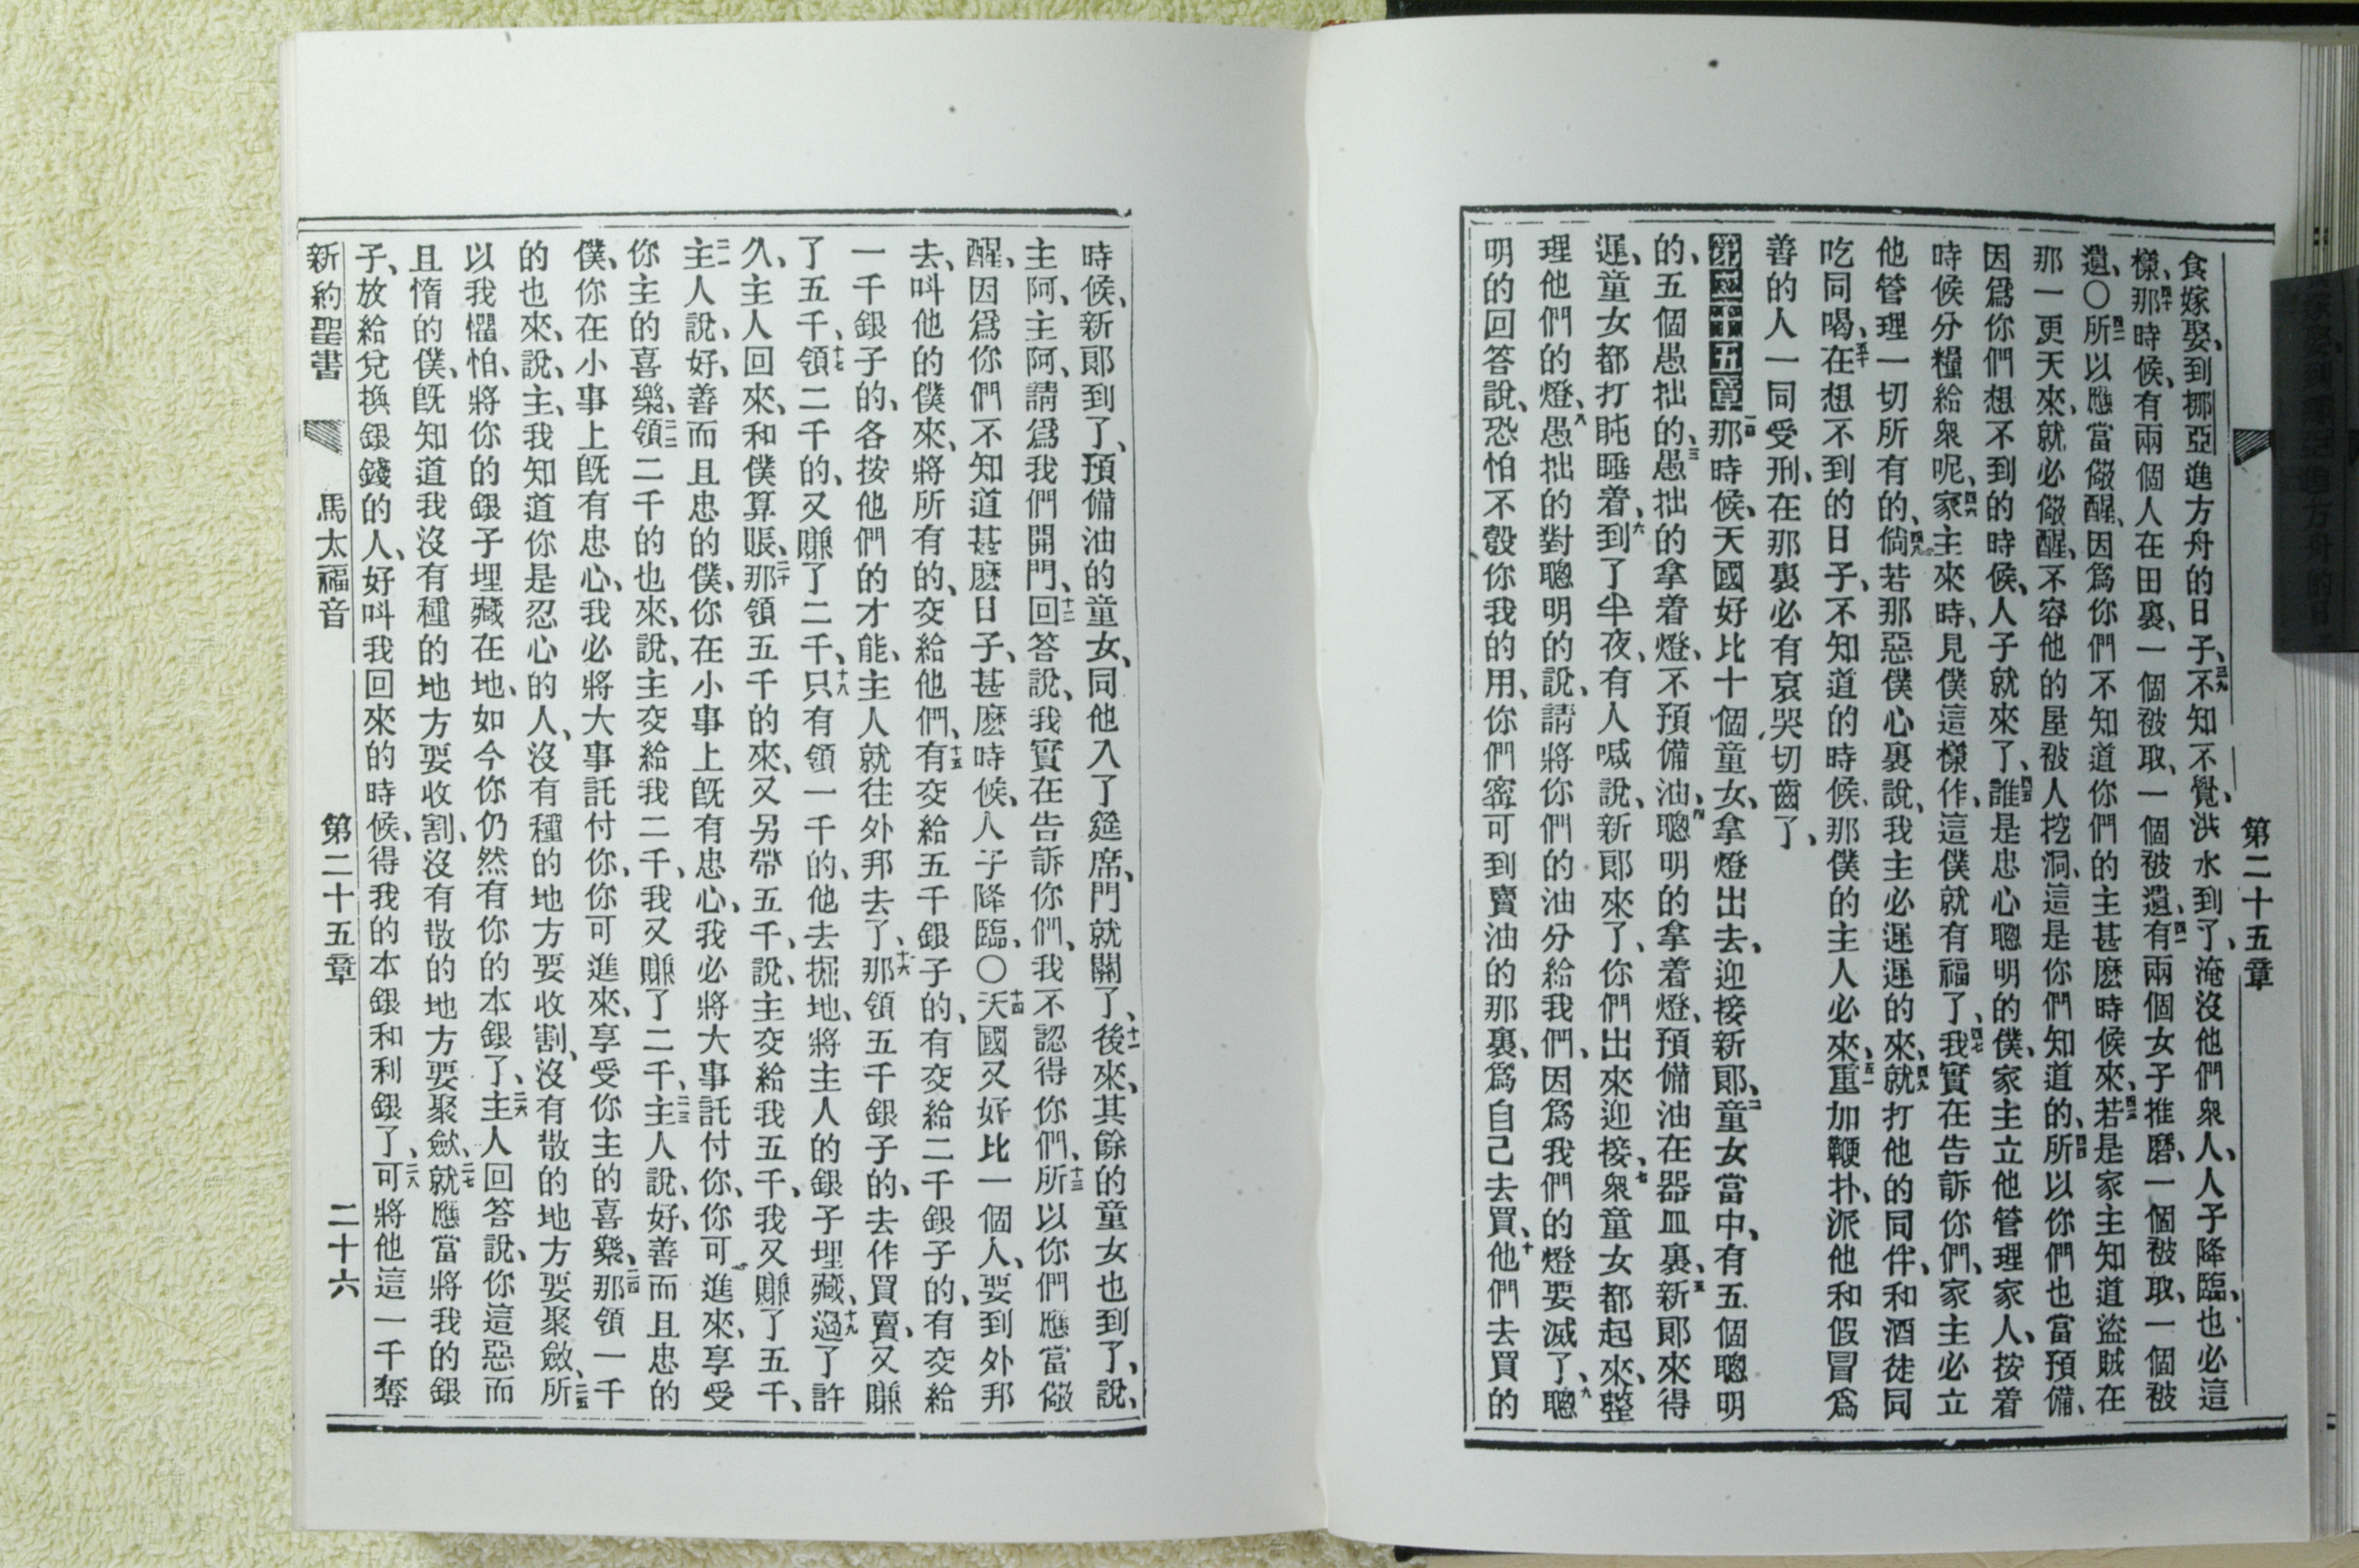 第二十五章
食嫁娶、到挪亞進方舟的日子、三九不知不覺、洪水到了、淹沒他們衆人、人子降臨、也必這
樣、四十那時候、有兩個人在田裏、一個被取、一個被遺、四一有兩個女子推磨、一個被取、一個被
遺、〇四二所以應當儆醒、因爲你們不知道你們的主甚麽時候來、四三若是家主知道盜賊在
那一更天來、就必儆醒、不容他的屋被人挖洞、這是你們知道的、四四所以你們也當預備、
因爲你們想不到的時候、人子就來了、四五誰是忠心聰明的僕、家主立他管理家人、按着
時候分糧給衆呢、四六家主來時、見僕這樣作、這僕就有福了、四七我實在告訴你們、家主必立
他管理一切所有的、四八倘若那惡僕心裏說、我主必遲遲的來、四九就打他的同伴、和酒徒同
吃同喝、五十在想不到的日子、不知道的時候、那僕的主人必來、五一重加鞭扑、派他和假冒爲
善的人一同受刑、在那裏必有哀哭切齒了、
第二十五章一那時候、天國好比十個童女、拿燈出去、迎接新郎、二童女當中、有五個聰明
的、五個愚拙的、三愚拙的拿着燈、不預備油、四聰明的拿着燈、預備油在器皿裏、五新郎來得
遲、童女都打盹睡着、六到了半夜、有人喊說、新郎來了、你們出來迎接、七衆童女都起來、整
理他們的燈、八愚拙的對聰明的說、請將你們的油分給我們、因爲我們的燈要滅了、九聰
明的回答說、恐怕不彀你我的用、你們寧可到賣油的那裏、爲自己去買、十他們去買的
時候、新郎到了、預備油的童女、同他入了筵席、門就關了、十一後來、其餘的童女也到了、說、
主阿、主阿、請爲我們開門、十二回答說、我實在告訴你們、我不認得你們、十三所以你們應當儆
醒、因爲你們不知道甚麽日子、甚麽時候、人子降臨、〇十四天國又好比一個人、要到外邦
去、叫他的僕來、將所有的、交給他們、十五有交給五千銀子的、有交給二千銀子的、有交給
一千銀子的、各按他們的才能、主人就往外邦去了、十六那領五千銀子的、去作買賣、又賺
了五千、十七領二千的、又賺了二千、十八只有領一千的、他去掘地、將主人的銀子埋藏、十九過了許
久、主人回來、和僕算賬、二十那領五千的來、又另帶五千、說、主交給我五千、我又賺了五千、
二一主人說、好、善而且忠的僕、你在小事上旣有忠心、我必將大事託付你、你可進來、享受
你主的喜樂、二二領二千的也來、說、主交給我二千、我又賺了二千、二三主人說、好、善而且忠的
僕、你在小事上旣有忠心、我必將大事託付你、你可進來、享受你主的喜樂、二四那領一千
的也來、說、主、我知道你是忍心的人、沒有種的地方要收割、沒有散的地方要聚斂、二五所
以我懼怕、將你的銀子埋藏在地、如今你仍然有你的本銀了、二六主人回答說、你這惡而
且惰的僕、旣知道我沒有種的地方要收割、沒有散的地方要聚斂、二七就應當將我的銀
子、放給兌換銀錢的人、好叫我回來的時候、得我的本銀和利銀了、二八可將他這一千奪
新約聖書 馬太福音 第二十五章 二十六